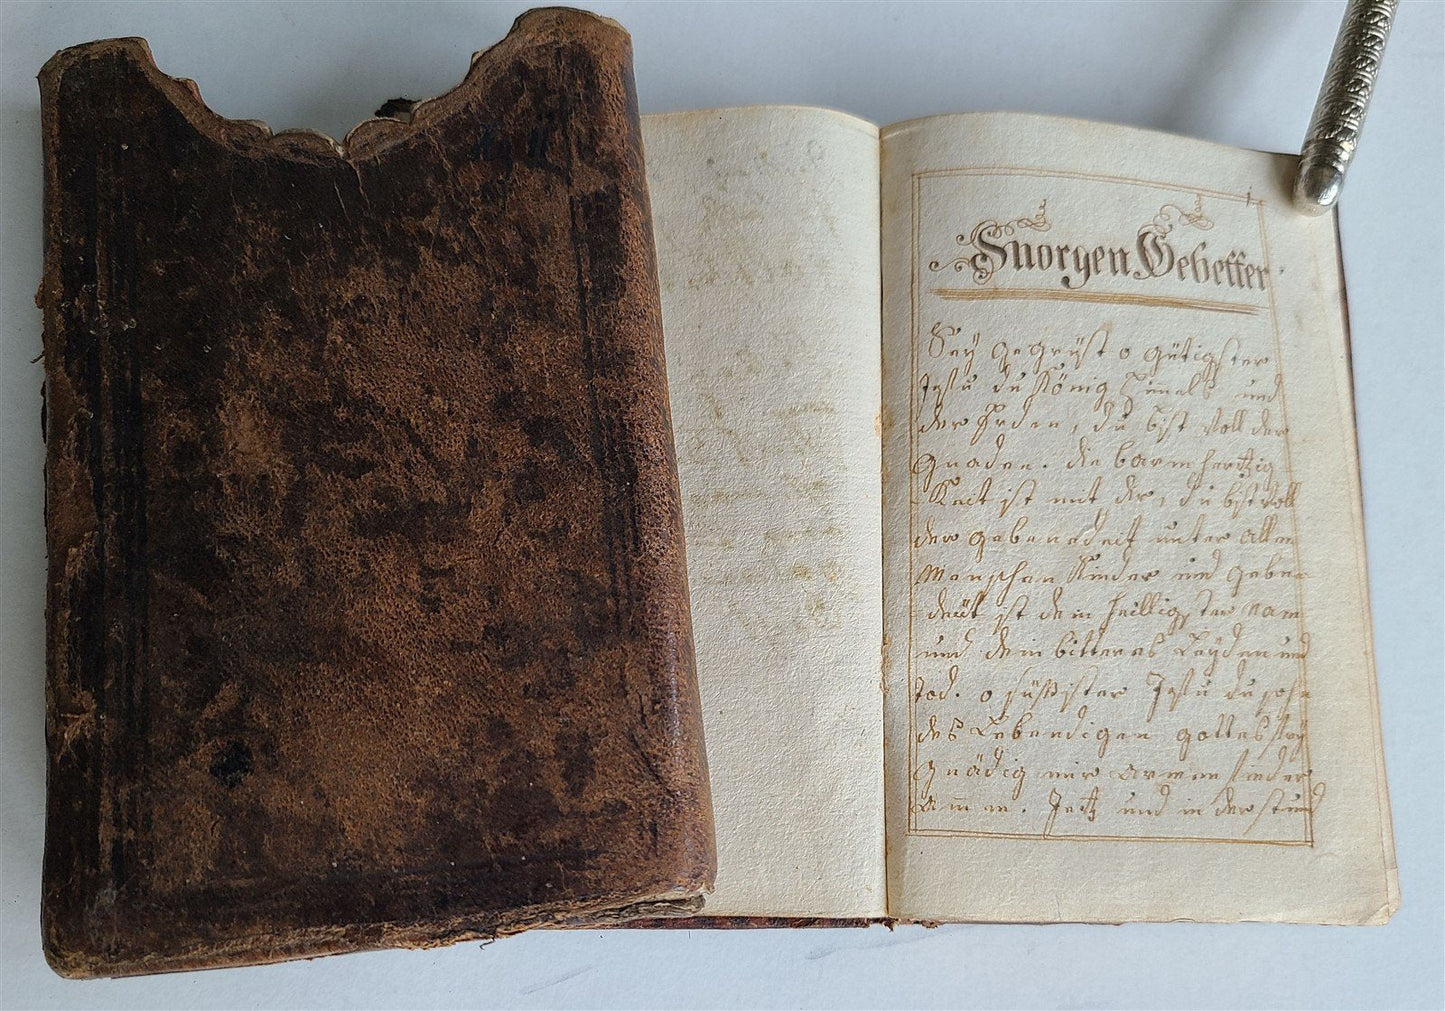 1.
Morgen Gebetter
Sey gegrüst o gütigster
Jesu du König Himels und
der Erden, du bist voll der
gnaden. die barmhertzig
Keit ist mit dir, du bist voll
der gebenedeit unter allen
Menschen Kinder und geben
deüt ist dein heilligster nam
und dein bitteres Leyden und
tod. o süssister Jesu du sohn
des Lebendigen gottes sey
gnädig mir armen sinder
amen. Jetz und in der stund